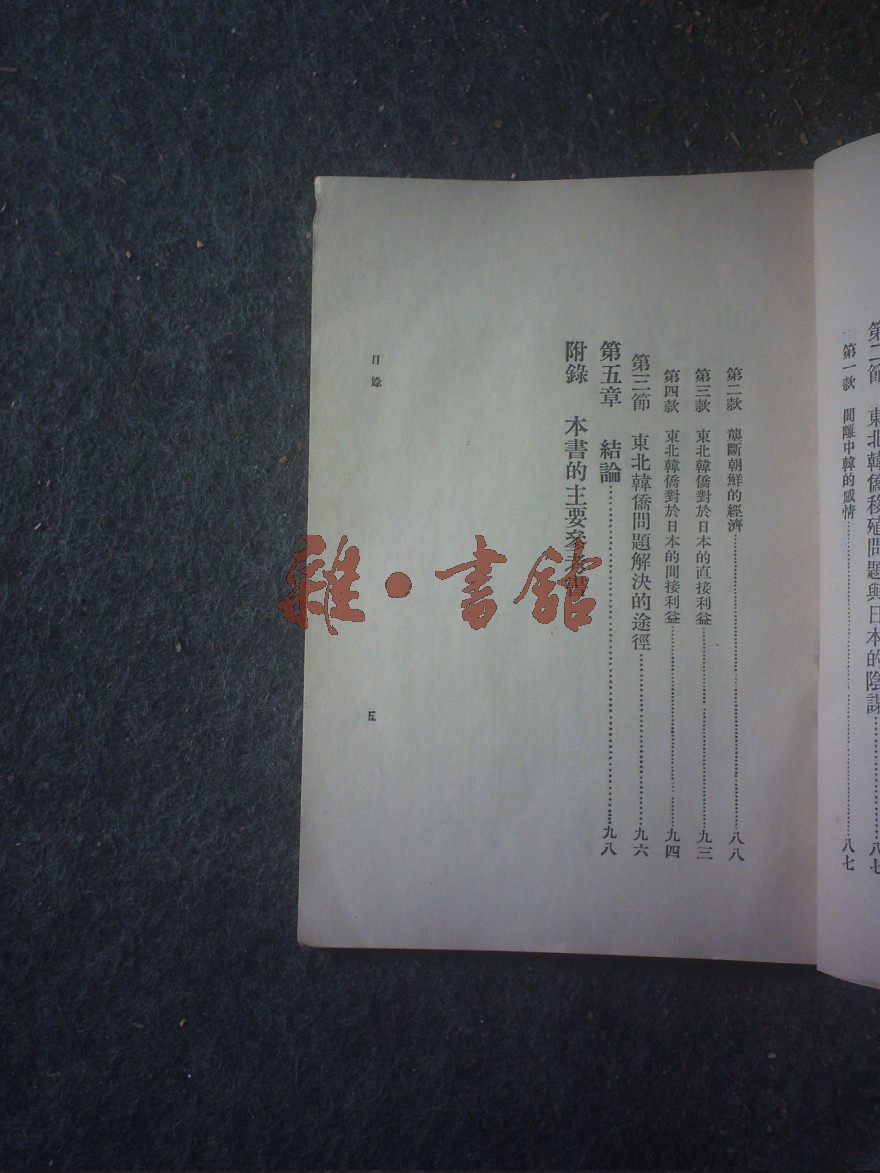 第二節 東北韓僑移殖問題與日本的陰謀……八七
第一款 間離中韓的感情……八七
第二款 壟斷朝鮮的經濟……八八
第三款 東北韓僑對於日本的直接利益……九三
第四款 東北韓僑對於日本的間接利益……九四
第三節 東北韓僑問題解決的途徑……九六
第五章 結論……九八
附錄 本書的主要參考書
目錄
五
雜·書館